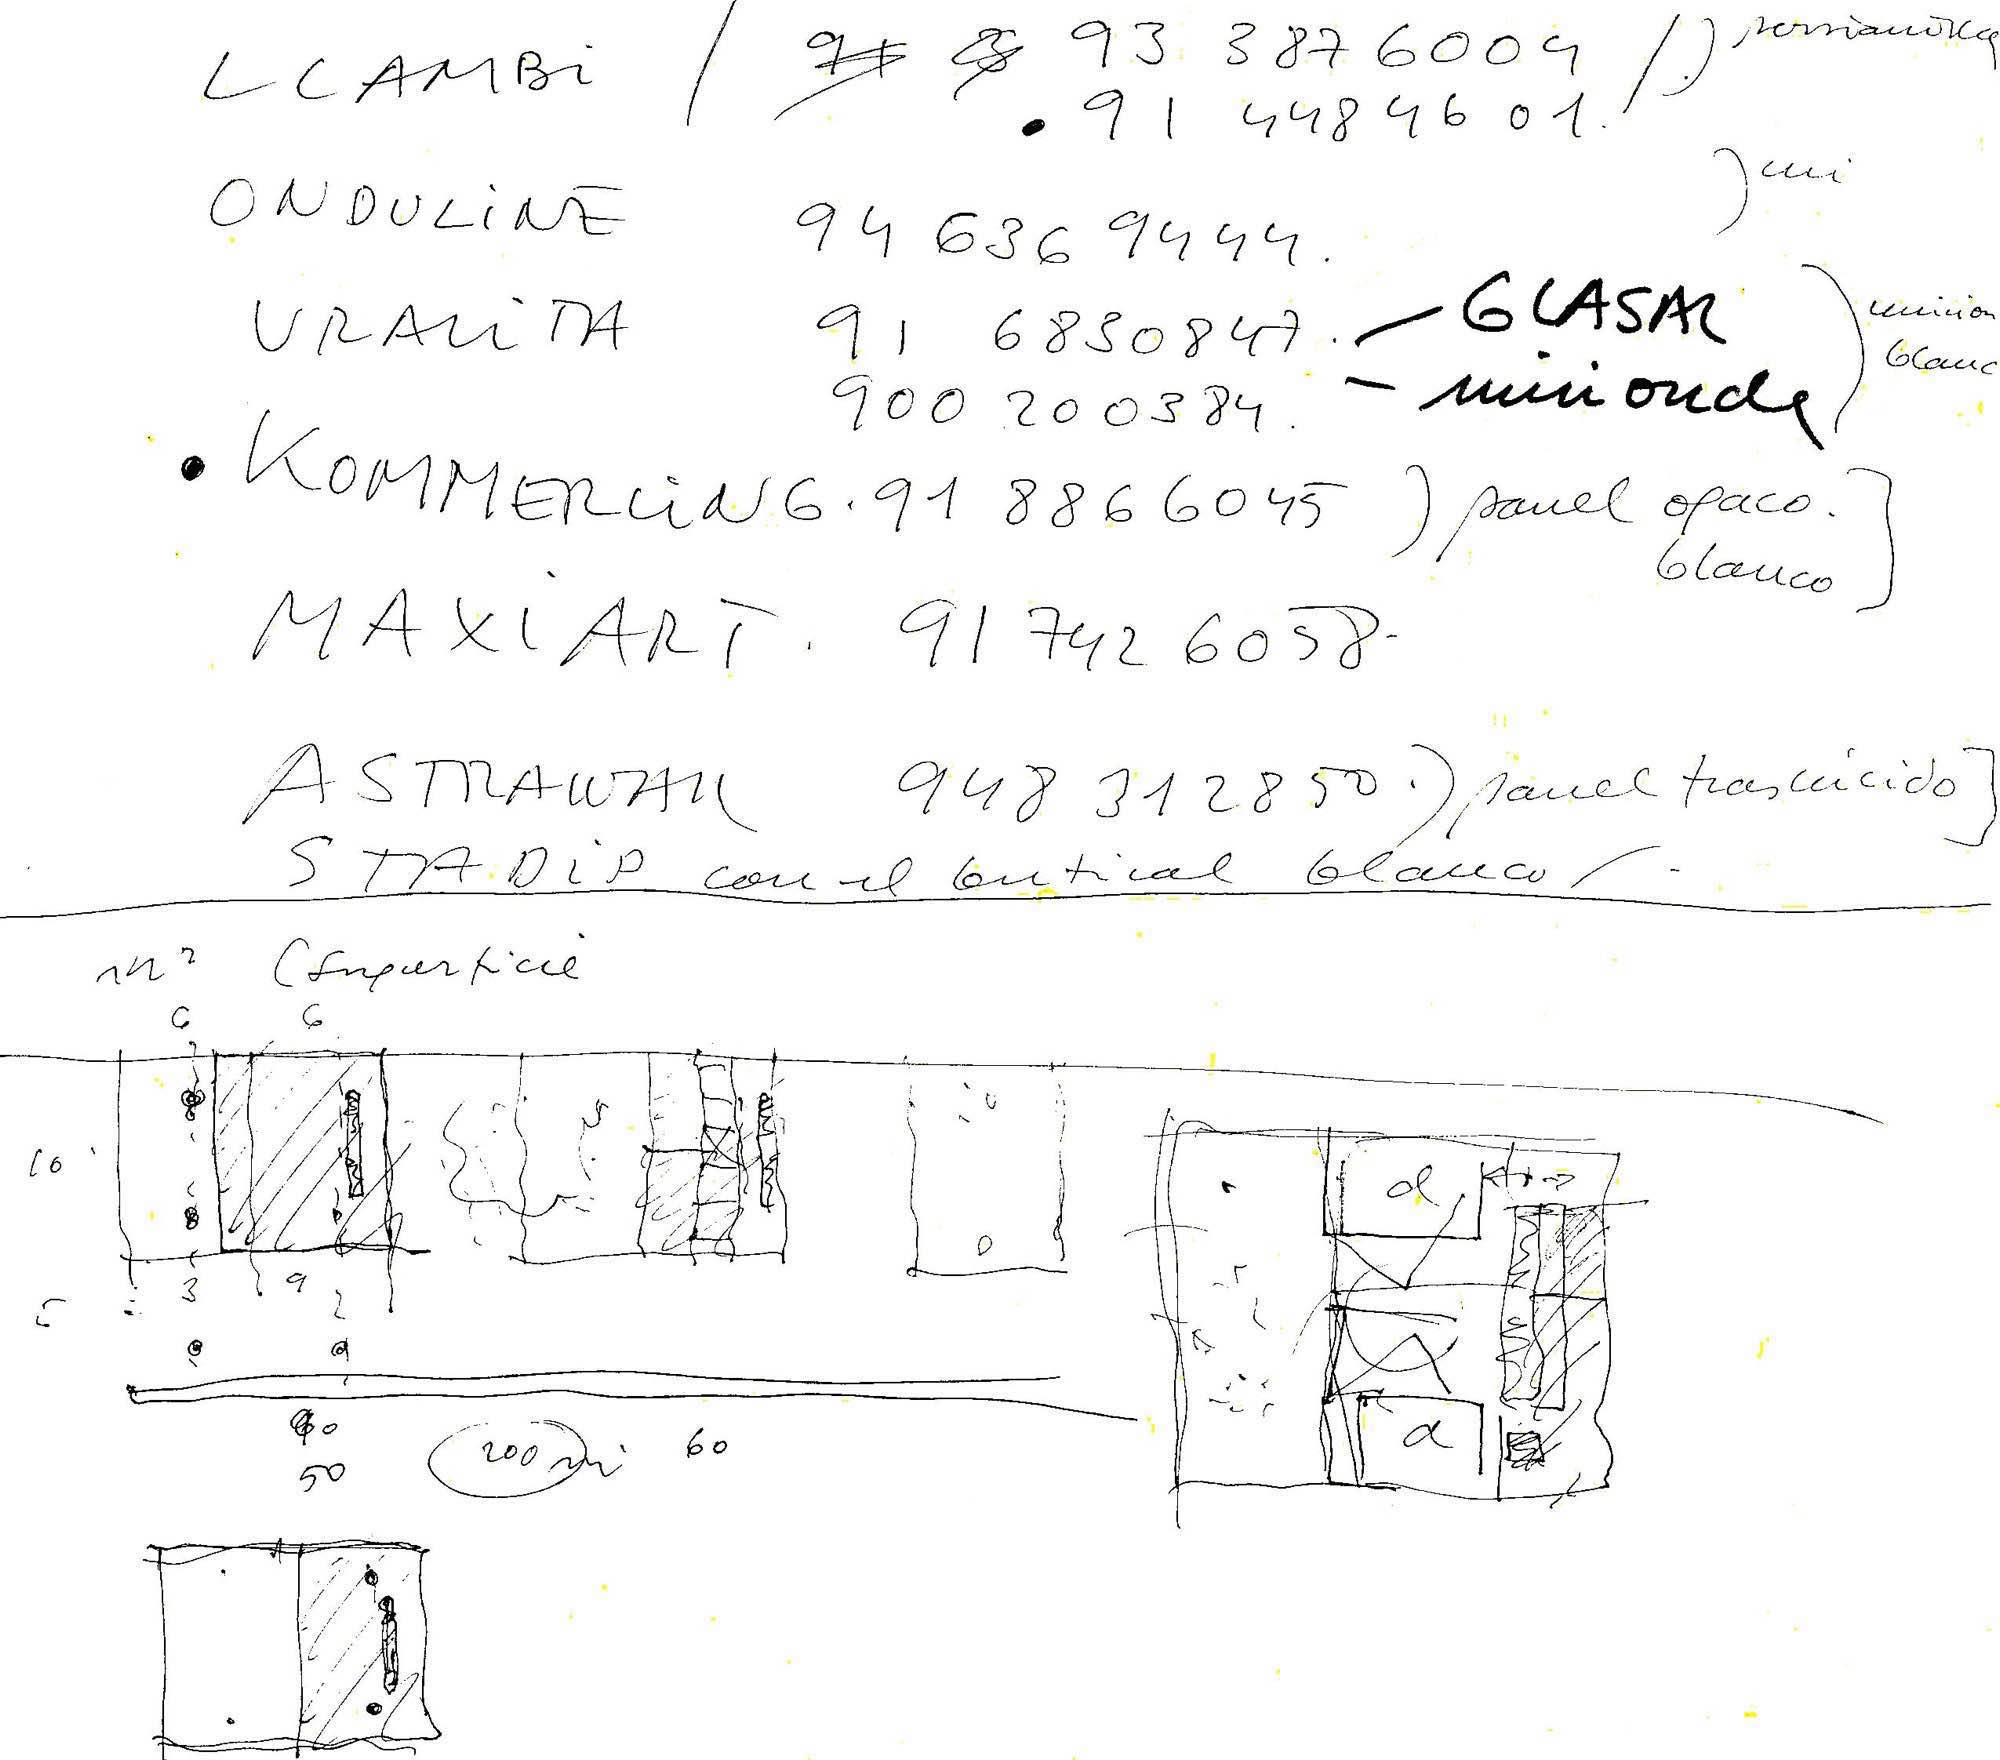 LLAMBi / 93 3876004 /
• 91 4484601.
ONDULINE 94 6369444.
URALITA 91 6830847. – GLASAL
900 200384. – minionda
blanc
• KOMMERLING. 91 8866045 ) panel opaco.
blanco
MAXIART. 91 7426058-
948 312850.) panel traslúcido
STADIP con el butiral blanco
m² (Superficie
6 6
10
3 9 2
5
50 200 60
d
d